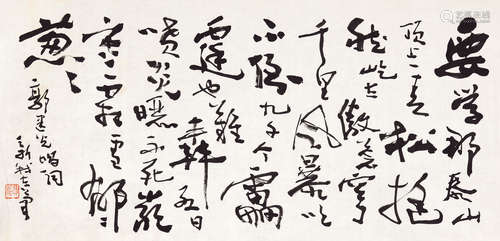 要学那泰山
顶上一青松挺
然屹立傲苍穹
千里风暴吹
不倒九千个雷
霆也难轰烈日
喷炎晒不死严
寒冰雪郁郁
葱葱
郭建光唱词